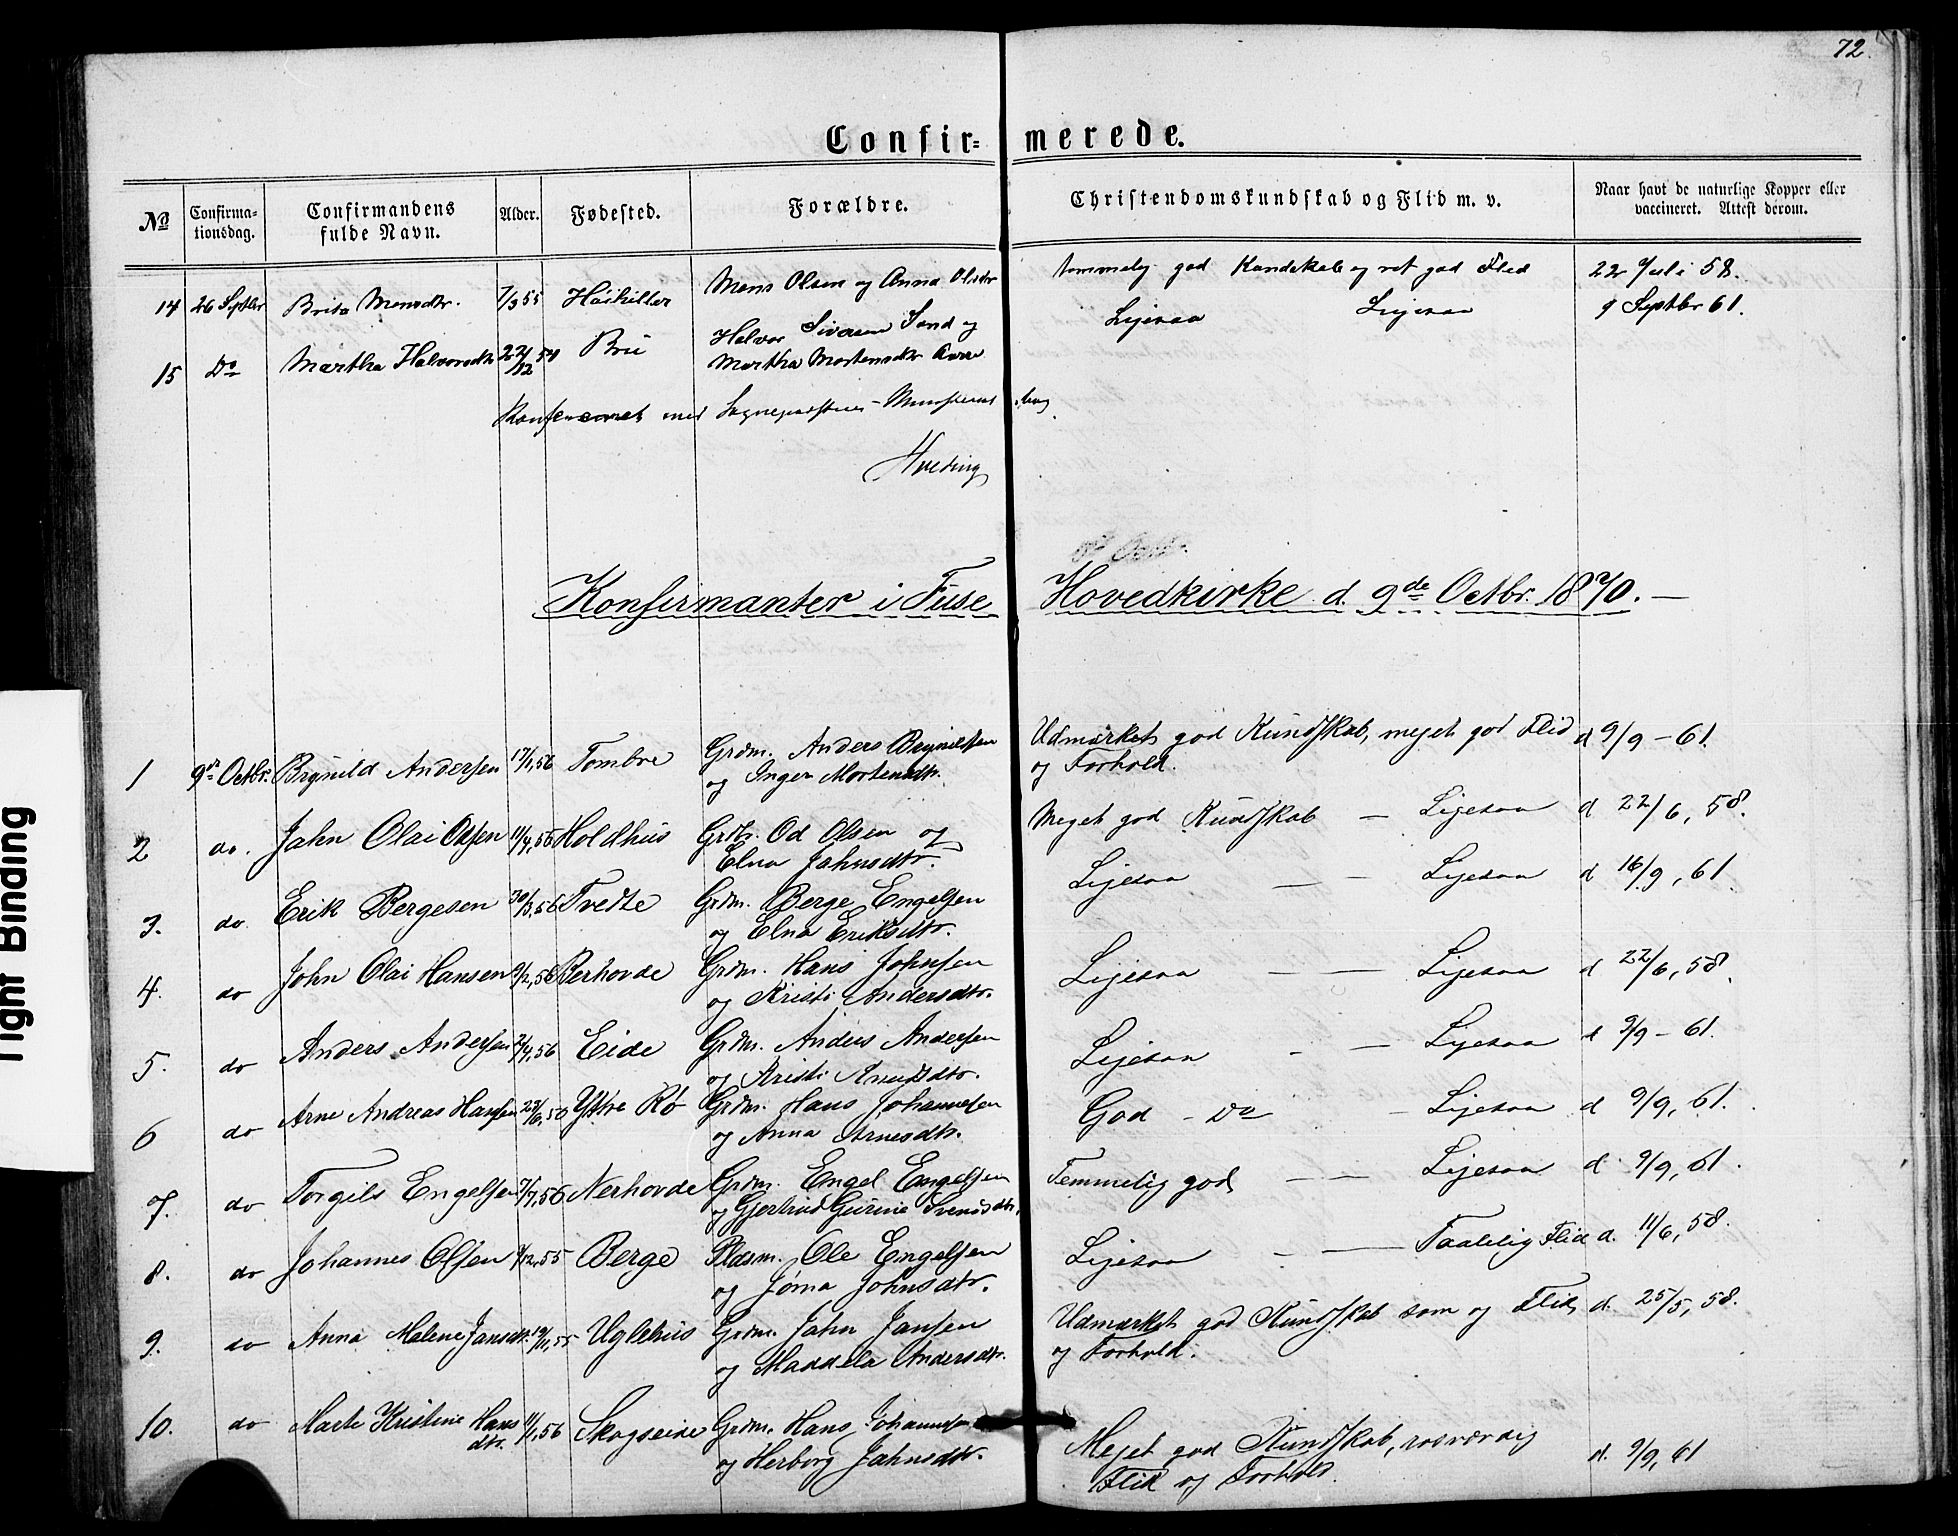 72.
Confirmerede.
No
Confirmationsdag.
Confirmandens fulde Navn.
Alder.
Fødested.
Forældre.
Christendomskundskab og Flid m. v.
Naar havt de naturlige Kopper eller vaccineret. Attest derom.
14 26 Septbr Brita Monsdtr. 7/3 55 Mons Olsen og Anna Olsdtr temmelig god Kundskab og ret god Flid 22 Juli 58.
15 Do Martha Halvorsdtr 22/12 54 Brü Halvor Siversen Sand og Ligesaa Ligesaa 9 Septbr 61.
Martha Mortensdtr
med
Hveding
Konfirmanter i Fuse Hovedkirke d. 9de Octbr. 1870.
1 9de Octbr. Brynild Andersen 17/1,56 Tombre Grdm. Anders Brynildsen Udmærket god Kundskab, meget god Flid d 9/9 - 61.
og Inger Mortensdtr. og Forhold.
2 do. Jahn Olai Odsen 11/4,56 Holdhus Grdb. Od Olsen og Meget god Kundskab — Ligesaa d 22/6, 58.
Elna Jahnsdtr.
3. do Erik Bergesen 30/3,56 Tvedte Grdm. Berge Engelsen Ligesaa — — Ligesaa d 16/9, 61
og Elna Eriksdtr.
4. do John Olai Hansen 9/2,56 Berhovde Grdm. Hans Johnsen Ligesaa — — Ligesaa d 22/6, 58.
og Kristi Andersdtr.
5. do Anders Andersen 2/4,56 Eide Grdm. Anders Andersen Ligesaa - — Ligesaa d 9/9 - 61.
og Kristi Knudsdtr.
6 do Arne Andreas Hansen Ytre Rø Grdm. Hans Johannesen God - Do - Ligesaa d 9/9, 61.
og Anna Arnesdtr.
7. do Torgils Engelsen 7/7,56 Nerhovde Grdm. Engel Engelsen Temmelig god — — Ligesaa d. 9/9, 61.
og Gjertrud Gurine Svendsdtr.
8. do Johannes Olsen 7/12,55 Berge Pladsm. Ole Engelsen Ligesaa - — Taalelig Flid d. 11/6, 58.
og Johnsdtr.
9. do Anna Malene Jansdtr. 19/11,55 Uglehus Grdm. Jahn Jansen Udmærket god Kundskab som og Flid d. 25/5, 58.
og Maddela Andersdtr. og Forhold.
10. do Marte Kristine Hansdtr. 11/1,56 Skogseide Grdm. Hans Johannesen Meget god Kundskab, rosværdig d. 9/9, 61
og Herborg Jahnsdtr. Flid og Forhold.
Tight Binding